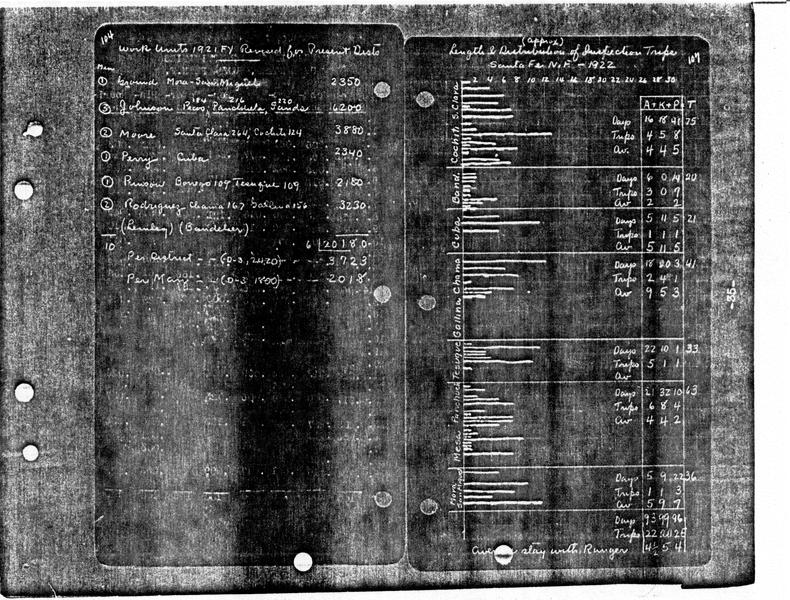 104
Work Units 1921 FY Revised for Present Dists
Men
① Ground Mora-San Miguel 2350
184 216 220
③ Johnson Pecos, Panchuela, Sands 6200
② Moore Santa Clara 264, Cochiti 124 3880
① Perry - Cuba 2340
① Rusow Borrego 109 Tesuque 109 2180
② Rodriguez Chama 167 Gallina 156 3230
(Lemley) (Bandelier)
10 6 20180
Per District - - (D-3, 2420) - 3723
Per Man - - (D-3 1800) - 2018
(approx)
Length & Distribution of Inspection Trips
Santa Fe N.F. - 1922
107
2 4 6 8 10 12 14 16 18 20 22 24 26 28 30
A + K + P = T
Cochiti S. Clara
Days 16 18 41 75
Trips 4 5 8
Av. 4 4 5
Band.
Days 6 0 14 20
Trips 3 0 7
Av 2 2
Cuba
Days 5 11 5 21
Trips 1 1 1
Av 5 11 5
Gallina Chama
Days 18 20 3 41
Trips 2 4 1
Av 9 5 3
Tesuque
Days 22 10 1 33
Trips 5 1 1
Av
Mesa Panchuela
Days 21 32 10 63
Trips 6 8 4
Av 4 4 2
Mora San Miguel
Days 5 9 22 36
Trips 1 1 3
Av 5 9 7
Days 93 99 96
Trips 22 20 25
4½ 5 4
Average stay with Ranger
-35-